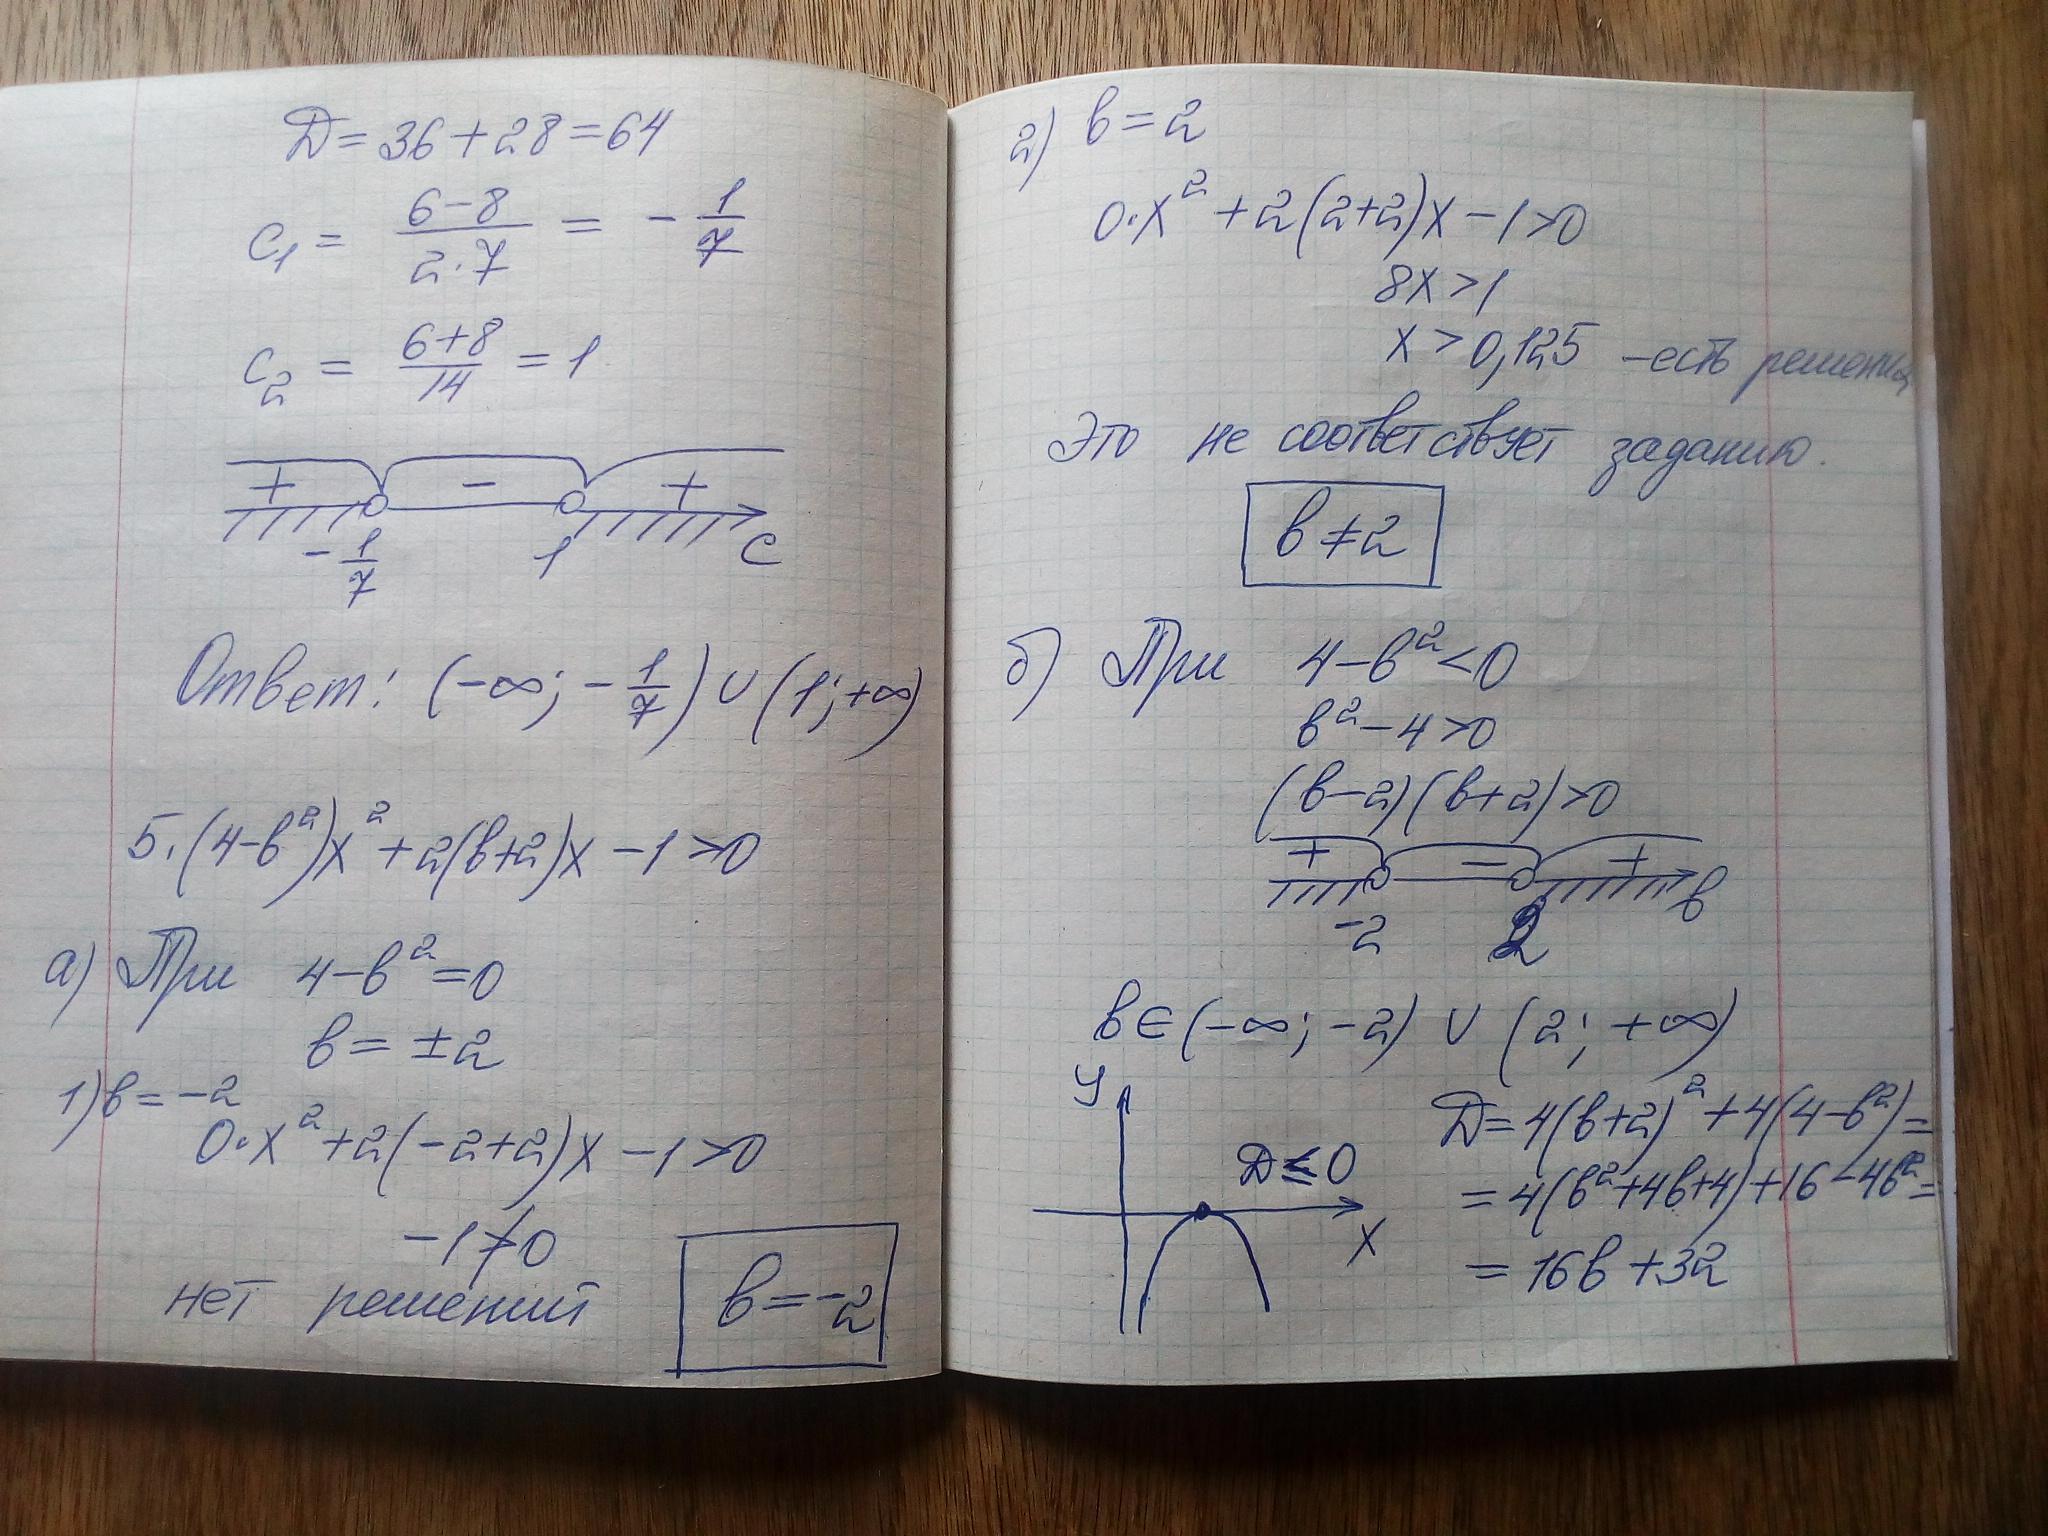 D = 36 + 28 = 64
c₁ = (6 − 8)/(2·7) = − 1/7
c₂ = (6 + 8)/14 = 1
+ − +
− 1/7 1 c
Ответ: (−∞; − 1/7) ∪ (1; +∞)
5. (4−в²)x² + 2(в+2)x − 1 > 0
а) При 4−в² = 0
в = ±2
1) в = −2
0·x² + 2(−2+2)x − 1 > 0
−1 ≯ 0
нет решений
в = −2
2) в = 2
0·x² + 2(2+2)x − 1 > 0
8x > 1
x > 0,125 – есть решения
Это не соответствует заданию.
в ≠ 2
б) При 4−в² < 0
в² − 4 > 0
(в−2)(в+2) > 0
+ − +
−2 2 в
в ∈ (−∞; −2) ∪ (2; +∞)
y
D ≤ 0
x
D = 4(в+2)² + 4(4−в²) =
= 4(в²+4в+4) + 16 − 4в² =
= 16в + 32